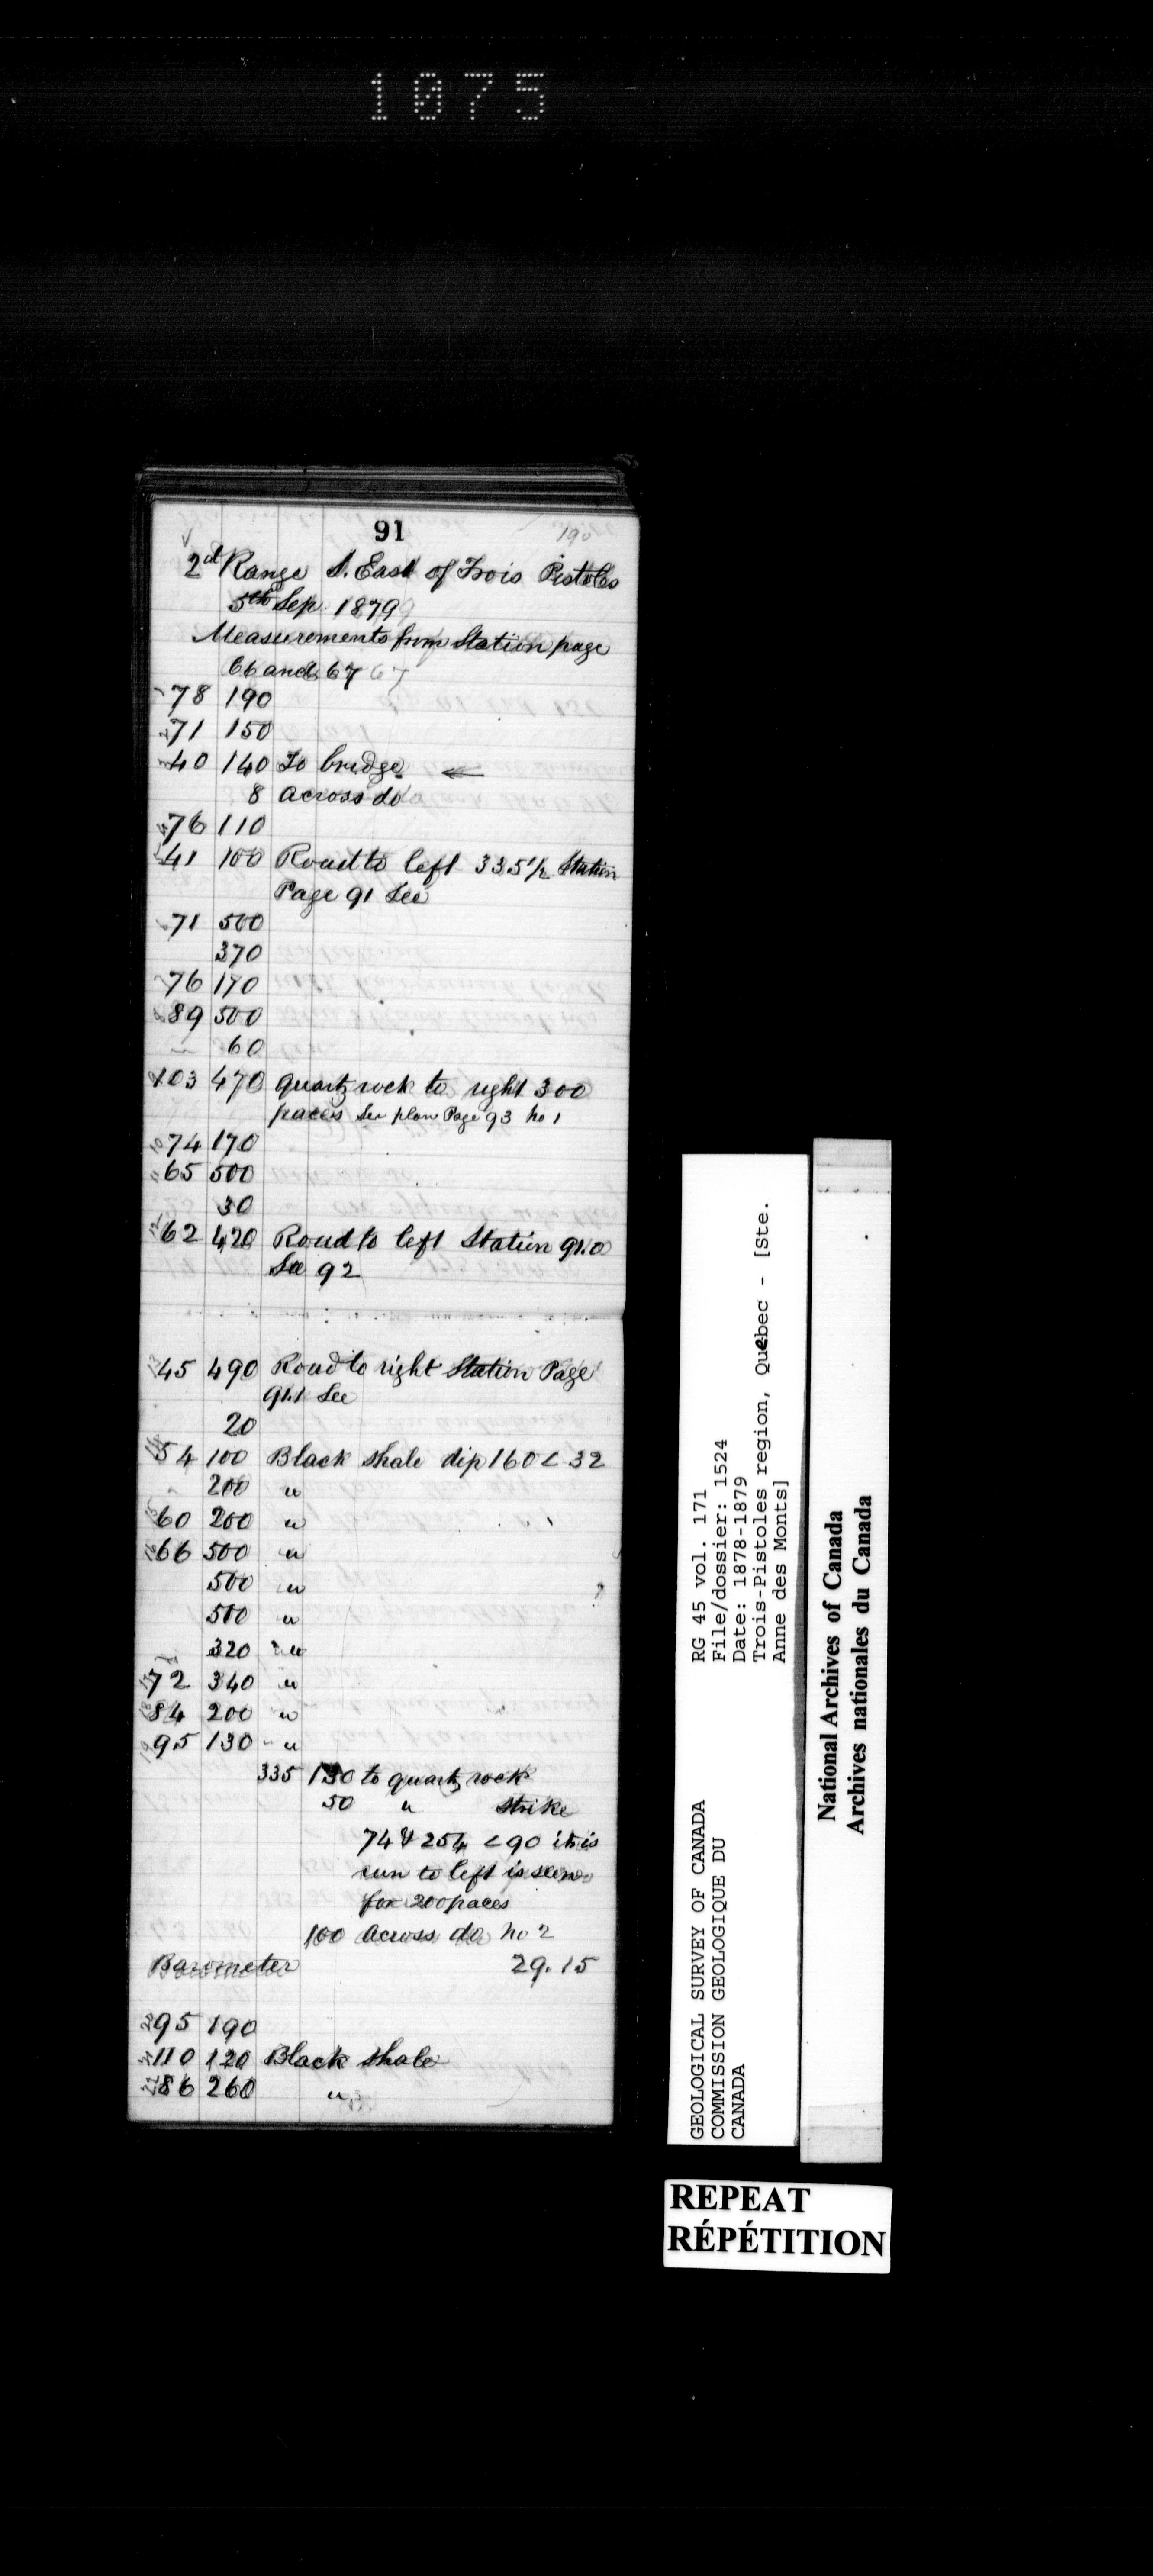 1075
91
190
2d Range S. East of Trois Pistoles
5th Sep. 1879
Measurements from Station page
66 and 67
1 78 190
2 71 150
3 40 140 To bridge
8 across do
4 76 110
5 41 100 Road to left 335 1/2 Station
Page 91 See
6 71 500
370
7 76 170
8 89 500
60
9 103 470 quartz rock to right 300
paces See plan Page 93 No 1
10 74 170
11 65 500
30
12 62 420 Road to left Station 91.0
See 92
13 45 490 Road to right Station Page
91.1 See
20
14 54 100 Black shale dip 160 < 32
200 "
15 60 200 "
16 66 500 "
500 "
500 "
320 "
17 72 340 "
18 84 200 "
19 95 130 "
335 130 to quartz rock
50 " strike
74 & 254 < 90 it is
run to left is seen
for 200 paces
100 across do No 2
Barometer 29.15
20 95 190
21 110 120 Black shale
22 86 260 "
GEOLOGICAL SURVEY OF CANADA
COMMISSION GEOLOGIQUE DU
CANADA
RG 45 vol. 171
File/dossier: 1524
Date: 1878-1879
Trois-Pistoles region, Quebec - [Ste.
Anne des Monts]
National Archives of Canada
Archives nationales du Canada
REPEAT
RÉPÉTITION